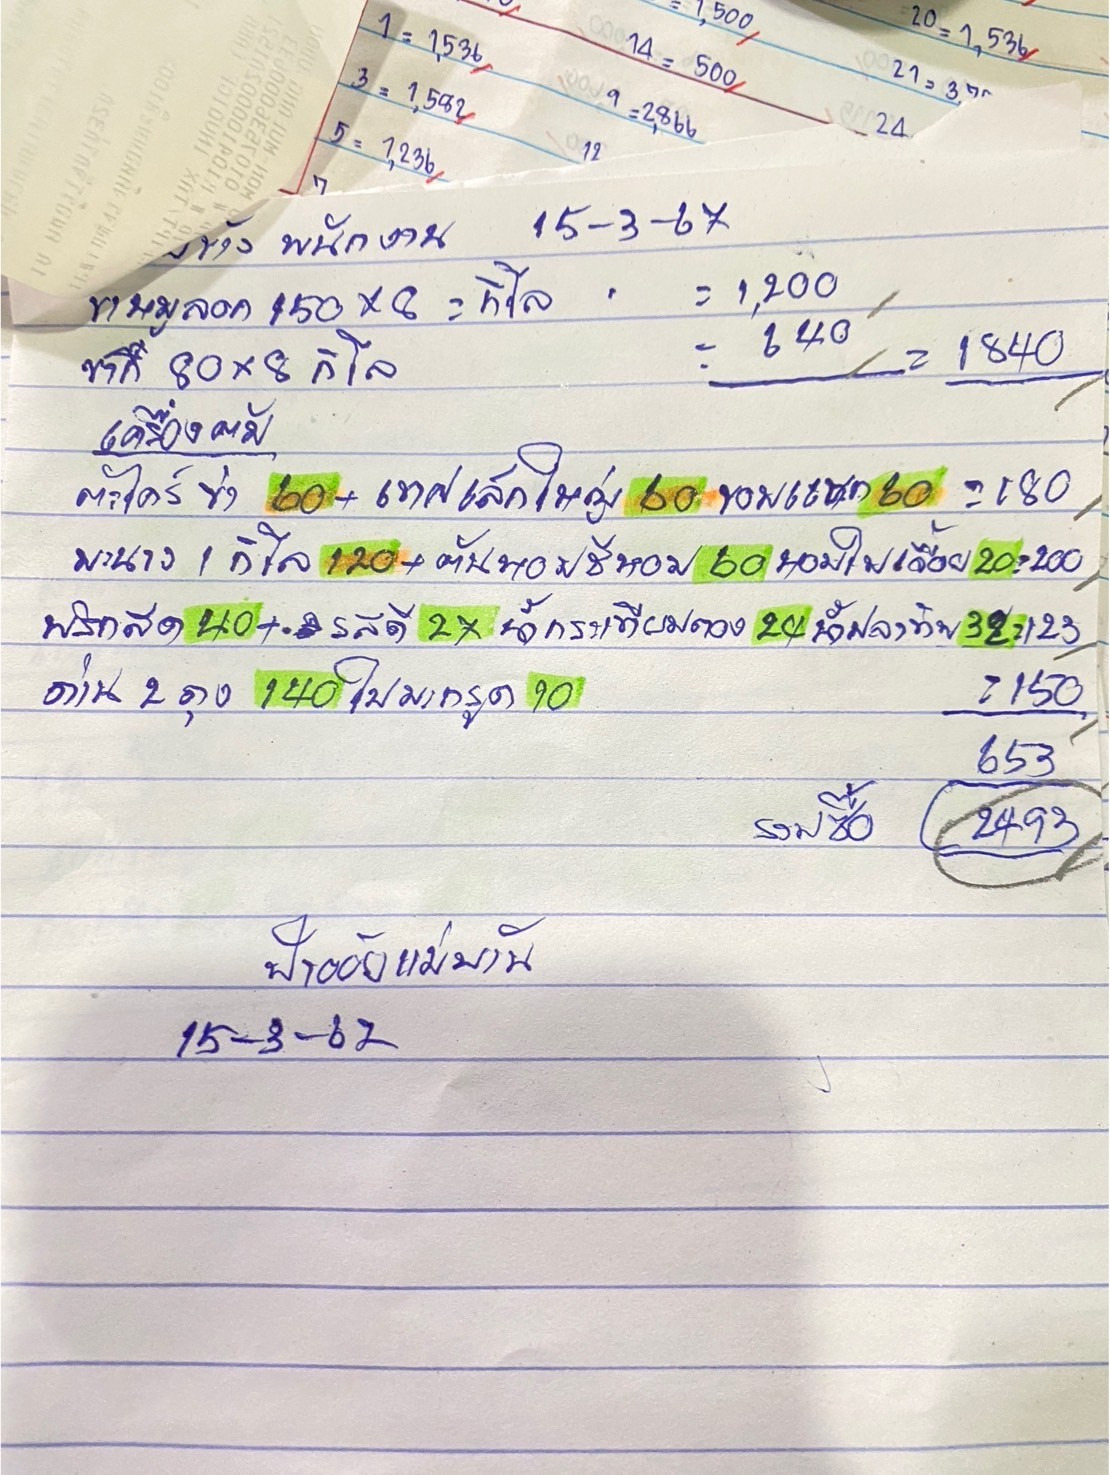 = 1,500
20 = 1,536
1 = 1,536
14 = 500
21 =
3 = 1,582
9 = 2,866
24
5 = 1,236
12
7
พนักงาน 15-3-67
ขาหมูลอก 150 x 8 = กิโล = 1,200
80 x 8 กิโล = 640 = 1840
เครื่องต้ม
ตะไคร้ ข่า 60 + เทศเล็กใหญ่ 60 หอมแขก 60 = 180
มะนาว 1 กิโล 120 + ต้นหอมชีหอม 60 หอมใบเลื้อย 20 = 200
พริกสด 40 + รสดี 27 น้ำกระเทียมดอง 24 น้ำปลาทิพ 32 = 123
ถ่าน 2 ถุง 140 ใบมะกรูด 10 = 150
653
รวมซื้อ 2493
ป้าออ้ยแม่บ้าน
15-3-67